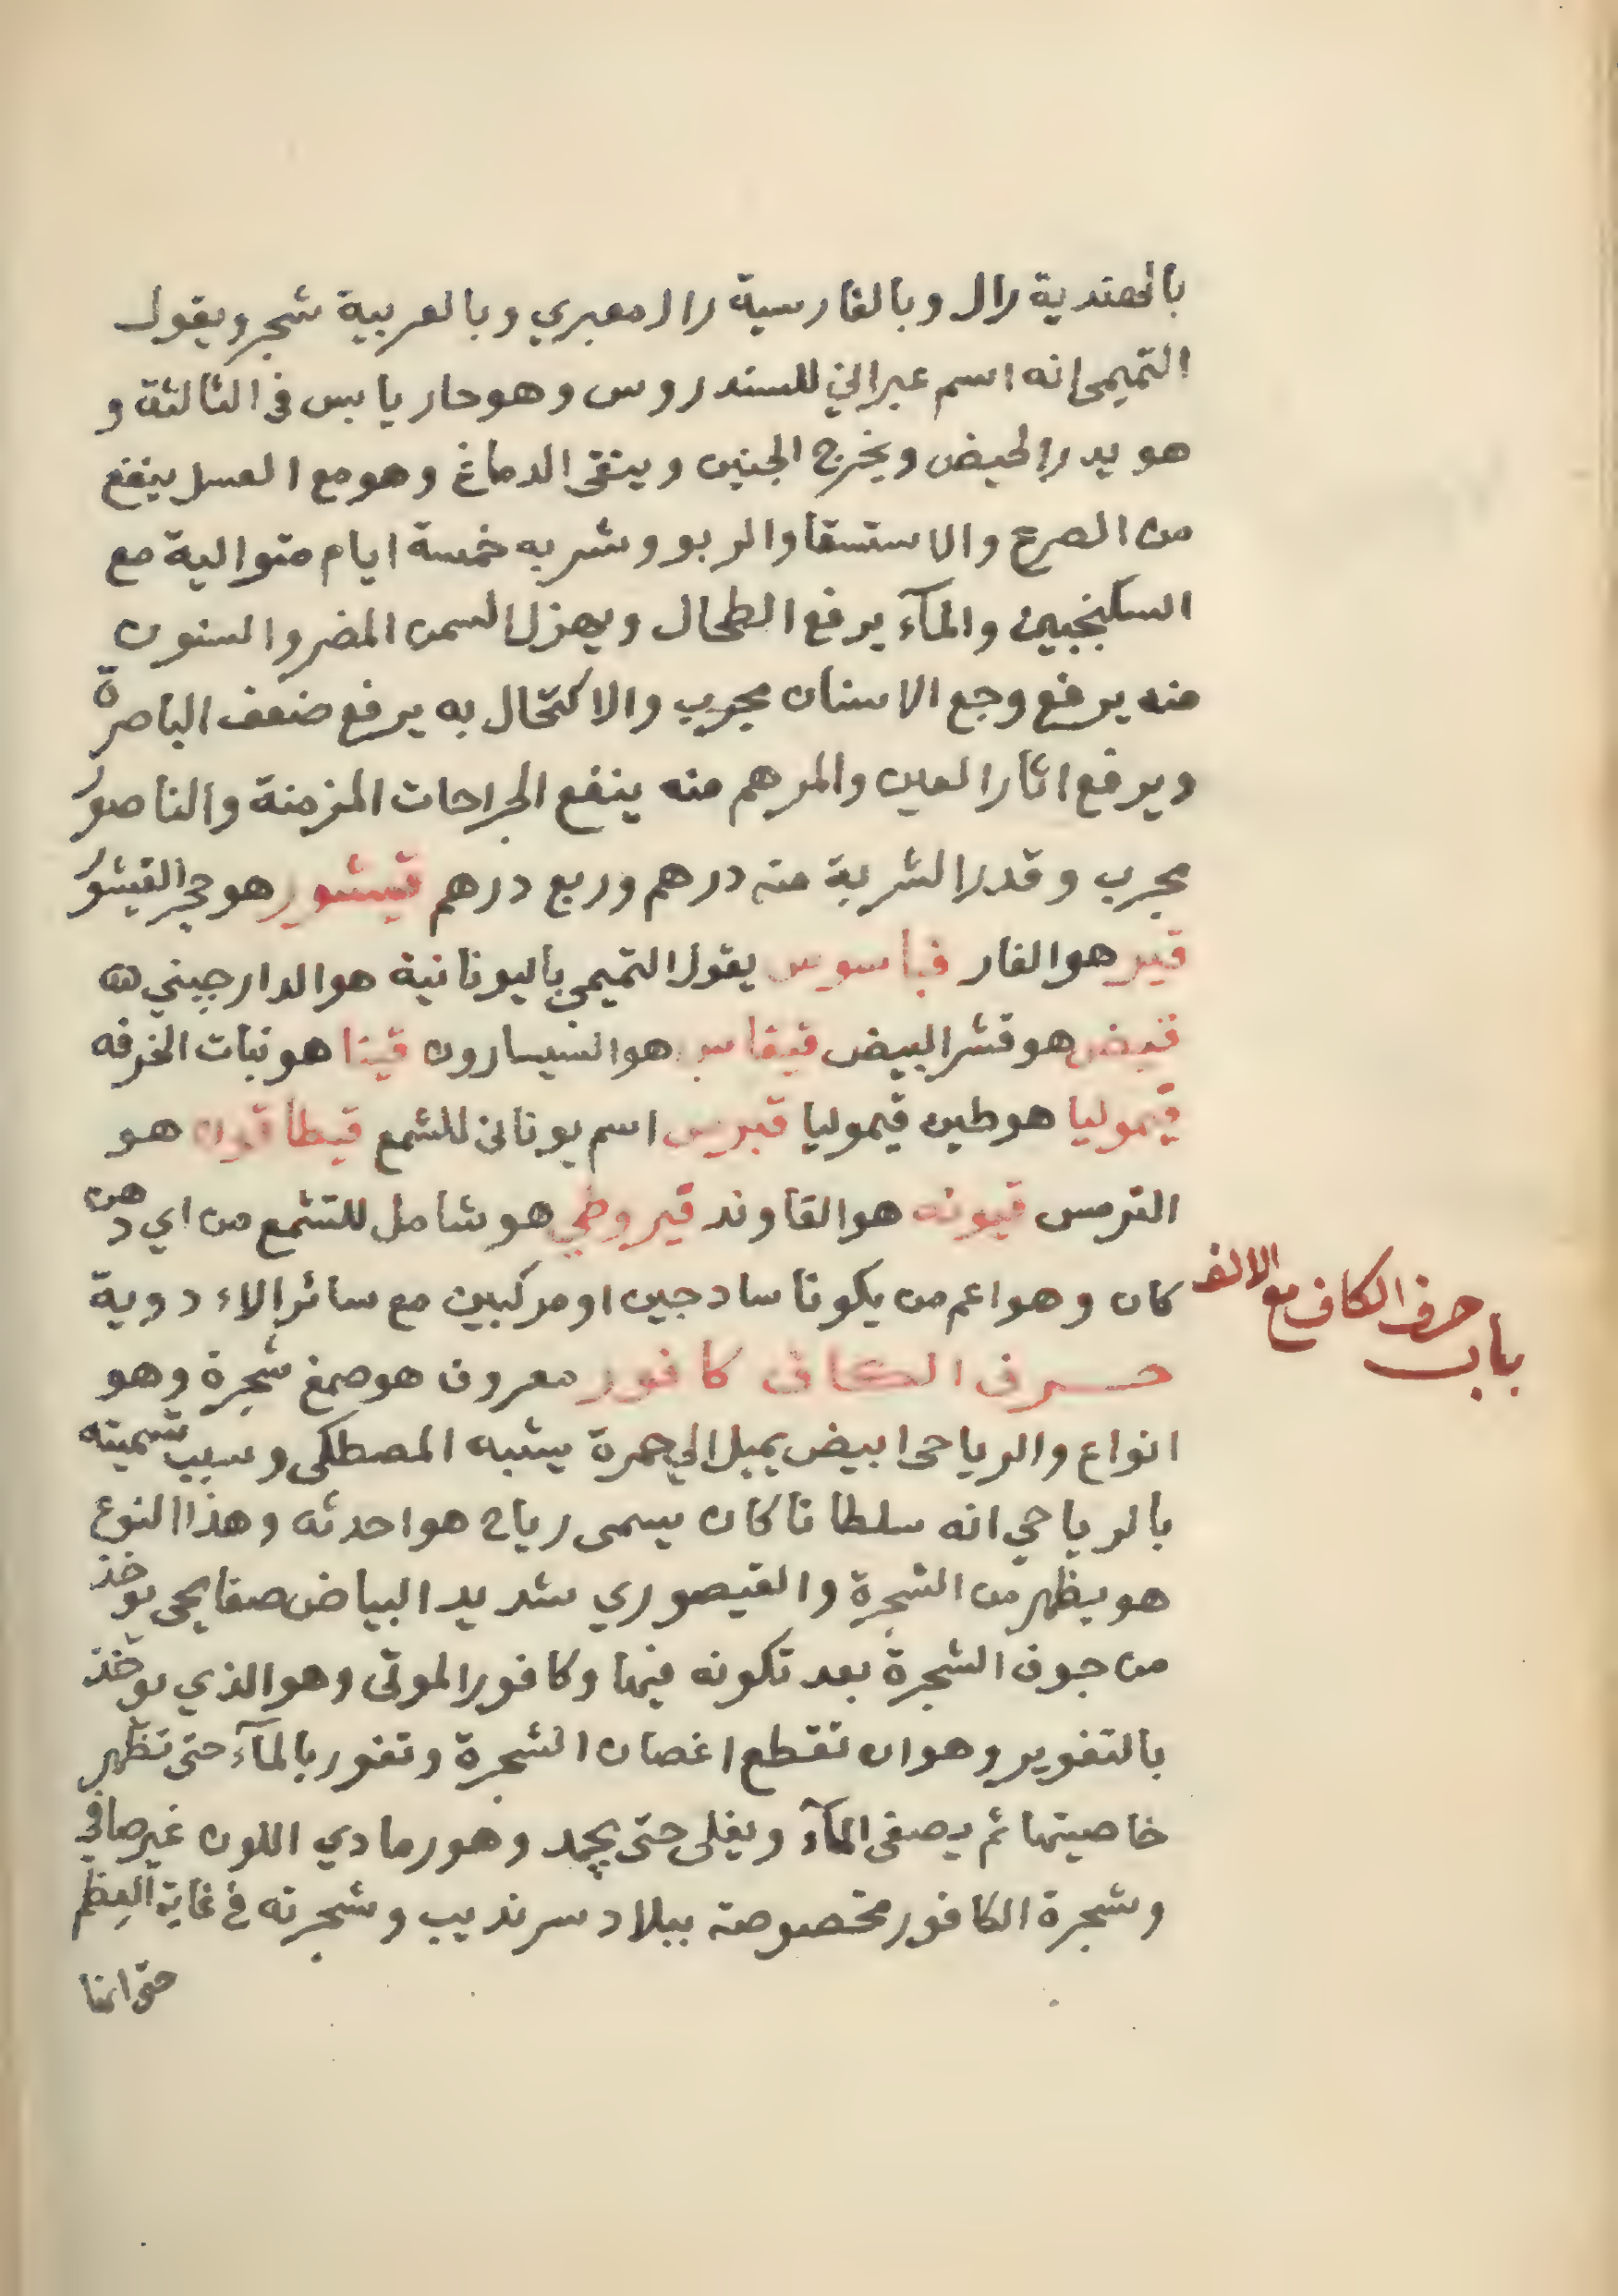 بالهندية رال وبالفارسية رال معبري وبالعربية شجر ويقول
التميمي انه اسم عبراني للسندروس وهو حار يابس في الثالثة و
هو يدر الحيض ويخرج الجنين وينقي الدماغ وهو مع العسل ينفع
من الصرع والاستسقا والربو وشربه خمسة ايام متوالية مع
السكنجبين والمآء يرفع الطحال ويهزل السمن المضر والسنون
منه يرفع وجع الاسنان مجرب والاكتحال به يرفع ضعف الباصرة
ويرفع اثار العين والمرهم منه ينفع الجراحات المزمنة والناصور
مجرب وقدر الشربة منه درهم وربع درهم قيشور هو حجر القيشور
قير هو القار قياسوس يقول التميمي باليونانية هو الدارجيني
قيض هو قشر البيض قيقاس هو السيسارون قينا هو نبات الخرفه
قيموليا هو طين قيموليا قيرس اسم يوناني للشمع قيطاقون هو
الترمس قيونه هو القاوند قيروطي هو شامل للشمع من اي دهن
كان وهو اعم من يكونا سادجين او مركبين مع سائر الاءدوية
باب حرف الكاف مع الالف
حرف الكاف كافور معروف هو صمغ شجرة وهو
انواع والرياحى ابيض يميل الي حمرة يشبه المصطكى وسبب تسميته
بالرياحي انه سلطانا كان يسمى رياح هو احدثه وهذا النوع
هو يظهر من الشجرة والقيصوري شديد البياض صفايحى يوخذ
من جوف الشجرة بعد تكونه فيها وكافور الموتى وهو الذي يوخذ
بالتفوير وهو ان تقطع اغصان الشجرة وتفور بالمآء حتى تظهر
خاصيتها ثم يصفى المآء ويغلى حتى يجمد وهو رمادي اللون غير صافي
وشجرة الكافور مخصوصة ببلاد سرنديب وشجرته في غاية العظم
حتى انها